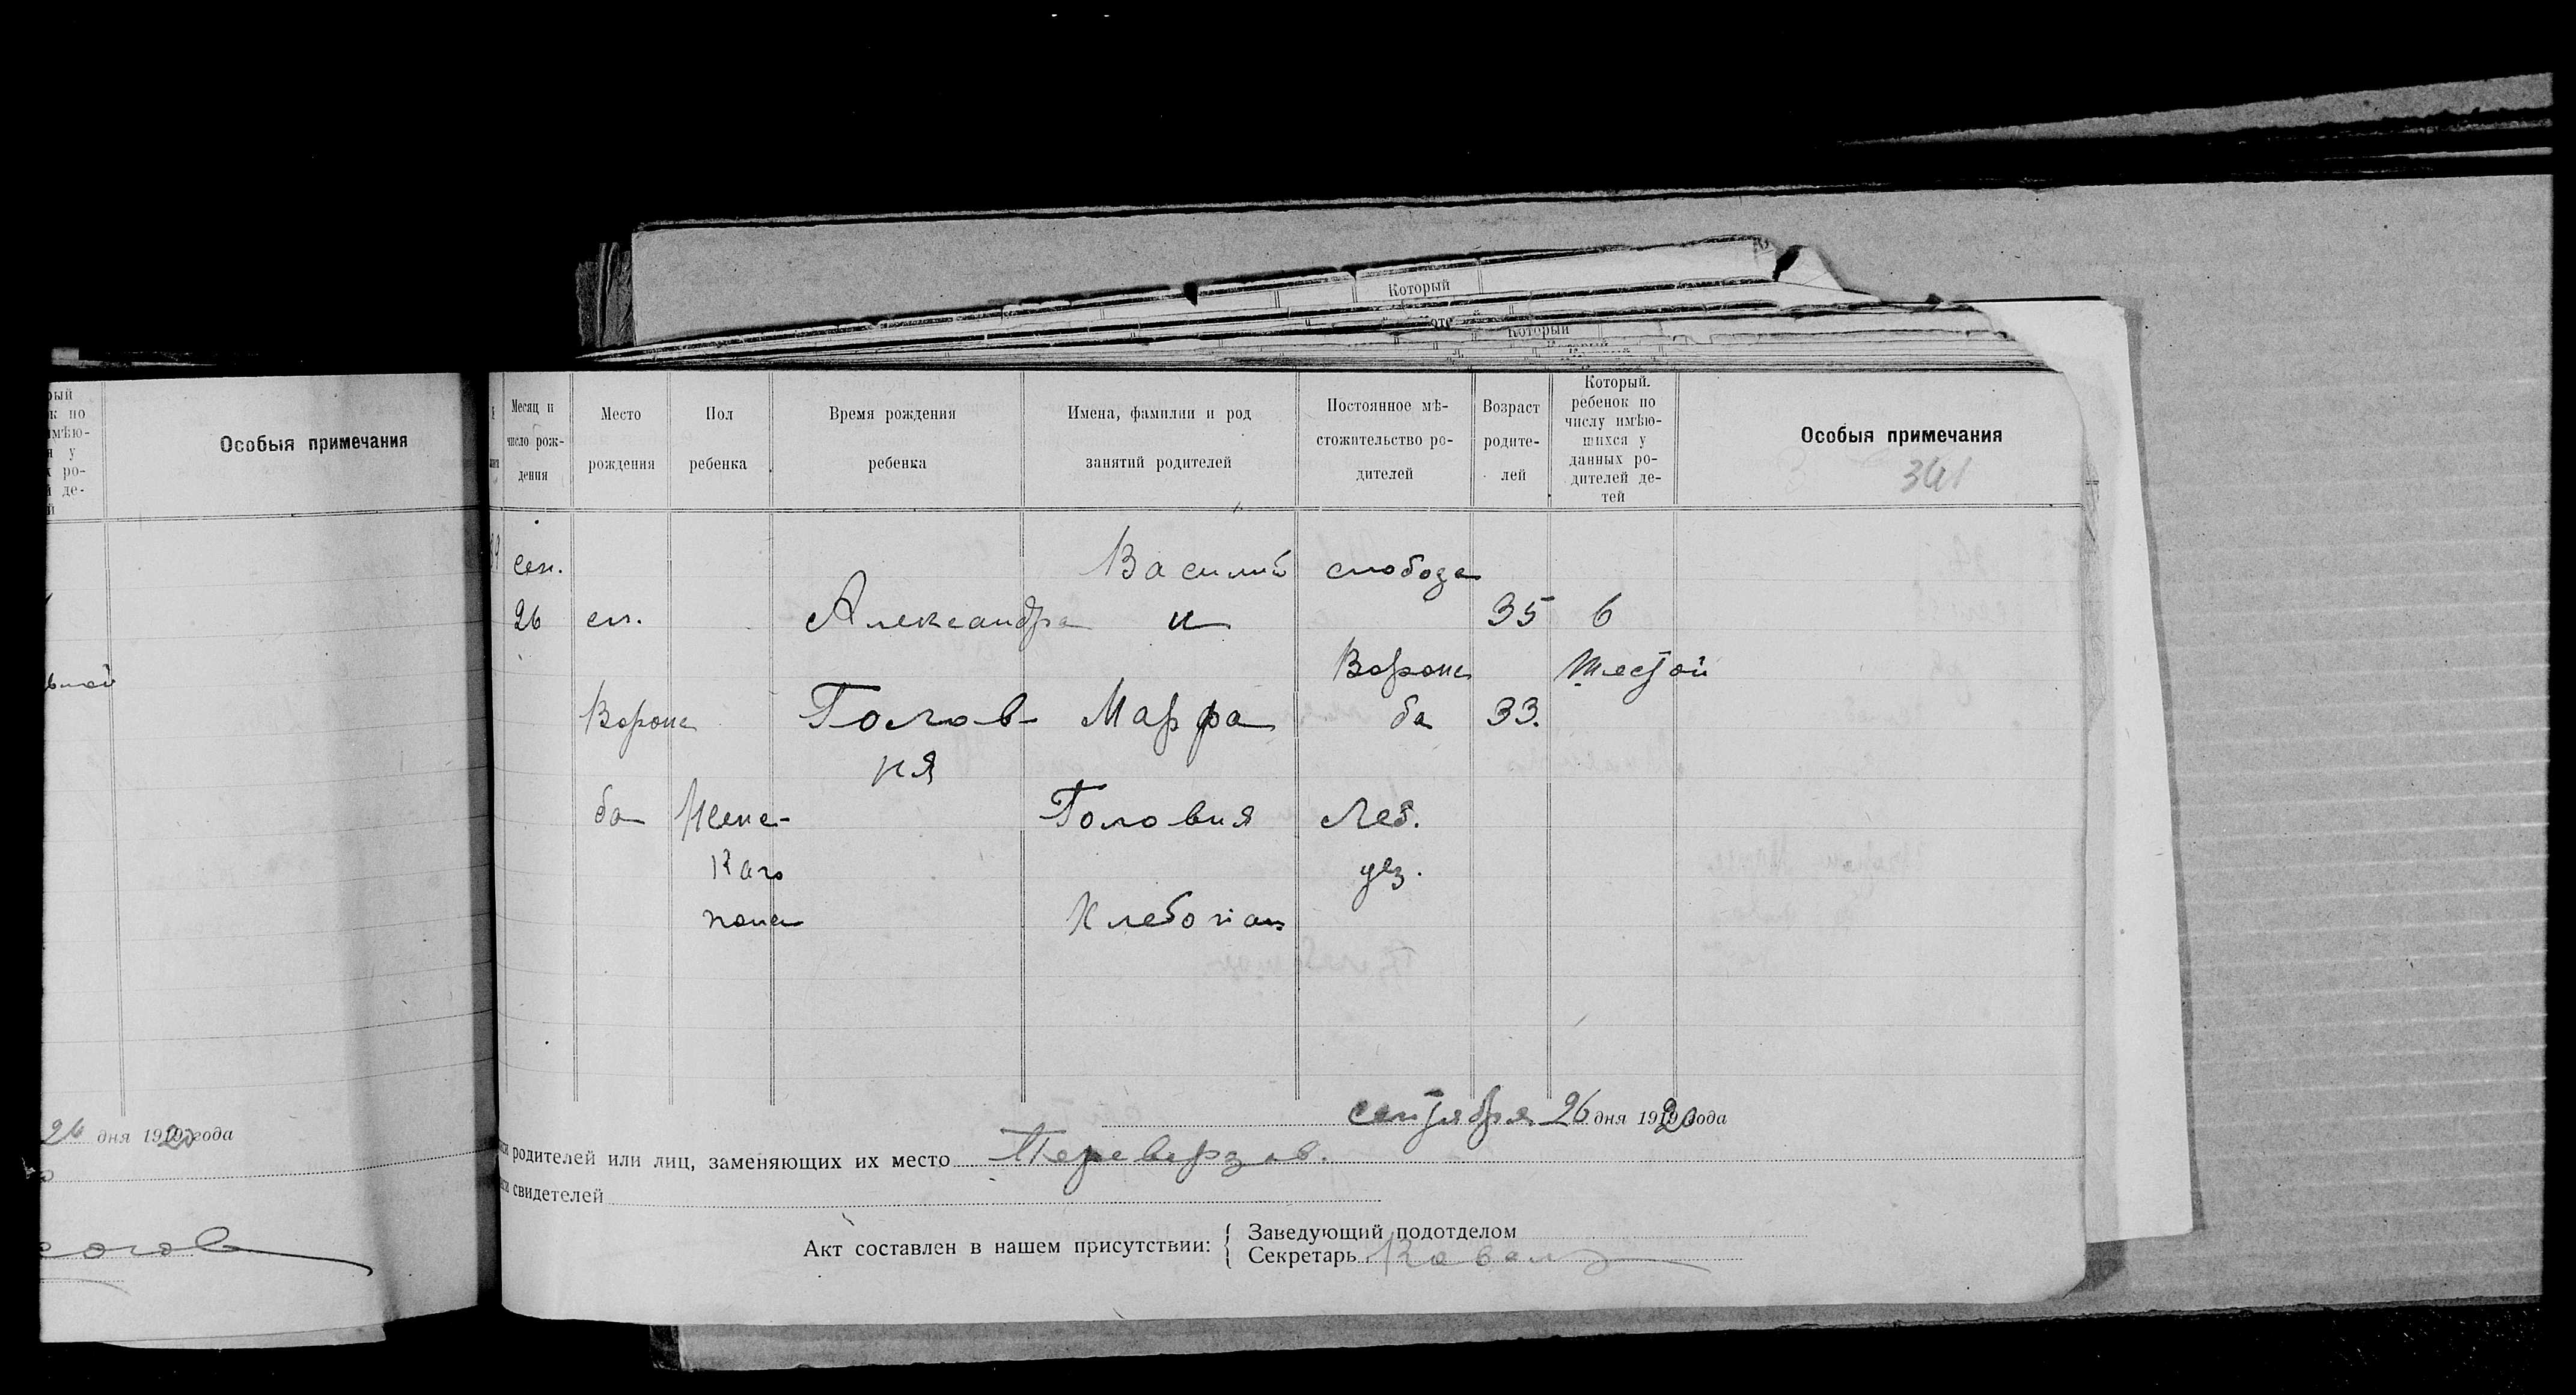 Который
Который
Особыя примечания
Месяц и число рождения
Место рождения
Пол ребенка
Время рождения ребенка
Имена, фамилии и род занятий родителей
Постоянное мѣстожительство родителей
Возраст родителей
Который. ребенок по числу имѣющихся у данных родителей детей
Особыя примечания
341
сен.
26
сл.
Ворож
ба
Женс-
каго
пола
Александра
Голов-
ня
Василий
и
Марфа
Головня
Хлебопаш
слобода
Ворож
ба
Леб.
уез.
35
33.
6
Шестой
сентября 26 дня 1920 года
26 дня 1920 года
родителей или лиц, заменяющих их место Переверзов.
свидетелей
Акт составлен в нашем присутствии:
Заведующий подотделом
Секретарь